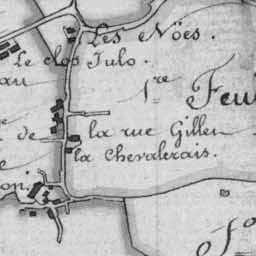 Les Nöes.
Le clos Julo.
au
1.re
Feui
e de
la rue Gillen
la Chevalerais.
on.